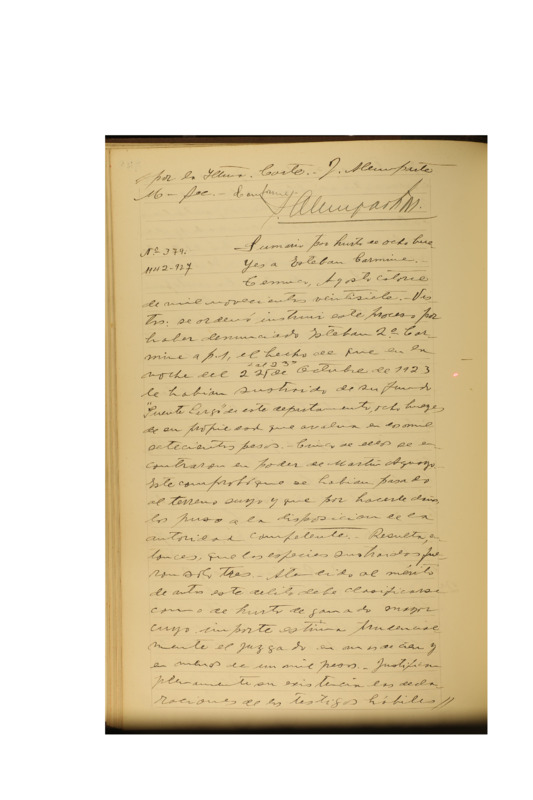 por la Iltma. Corte.- J. Alemparte
M- Sec.-
J. Alemparte M.
Nº 379.
1112-927
Sumario por hurto de ocho bue
yes a Esteban Carmine.-
Temuco, Agosto catorce
de mil novecientos veintisiete.- Vis
tos, se ordenó instruir este proceso por
haber denunciado Esteban 2º Car
mine a f.1, el hecho de que en la
noche del 22 al 23 de Octubre de 1923
le habian sustraido de su fundo
"Puente Largo" de este departamento, ocho bueyes
de su propiedad que avalua en dos mil
setecientos pesos.- Cinco de ellos se en
contraron en poder de Martin Aguayo.
Este comprobó que se habian pasado
al terreno suyo y que por hacerle daños
los puso a la disposicion de la
autoridad competente.- Resulta, en
tonces, que las especies sustraidas fue
ron solo tres.- Atendido al mérito
de autos este delito debe clasificarse
como de hurto de ganado mayor
cuyo importe estima prudencial
mente el juzgado en mas de cien y
en menos de un mil pesos.- Justifican
plenamente su existencia las decla
raciones de los testigos hábiles //